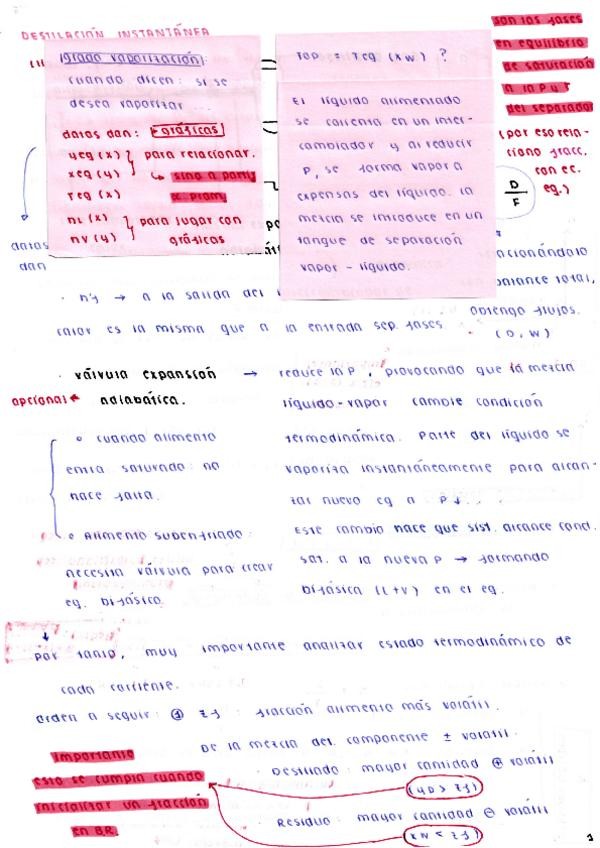 DESTILACIÓN INSTANTÁNEA
son las fases
en equilibrio
de saturación
a la P y T
del separador
(por eso rela-
ciono fracc.
con ec.
eg.)
D
F
grado vaporización:
cuando dicen: si se
desea vaporizar...
datos dan: gráficas
yeq (x)
xeq (y)
Teq (x)
para relacionar.
sino a partir
hL (x)
hV (y)
para jugar con
gráficas
Top = Teq (xw) ?
El líquido alimentado
se calienta en un inter-
cambiador y al reducir
P, se forma vapor a
expensas del líquido. La
mezcla se introduce en un
tanque de separación
vapor - líquido.
datos
dan
balance total,
obtengo flujos.
(D, W)
· hf → a la salida del
calor es la misma que a la entrada sep. fases.
· válvula expansión → reduce la P, provocando que la mezcla
opcional adiabática. líquido-vapor cambie condición
o cuando alimento termodinámica. Parte del líquido se
entra saturado: no vaporiza instantáneamente para alcan-
hace falta. zar nuevo eq a P↓...
o Alimento subenfriado: Este cambio hace que sist. alcance cond.
necesita válvula para crear sat. a la nueva P → formando
eq. bifásico bifásica (L+V) en el eq.
Por tanto, muy importante analizar estado termodinámico de
cada corriente.
orden a seguir: ① zf: fracción alimento más volátil.
De la mezcla del componente ± volátil.
Importante
esto se cumpla cuando
inicializar un fracción
en B.R.
Destilado: mayor cantidad ⊕ volátil
(yD > zf)
Residuo: mayor cantidad ⊖ volátil
(xw < zf)